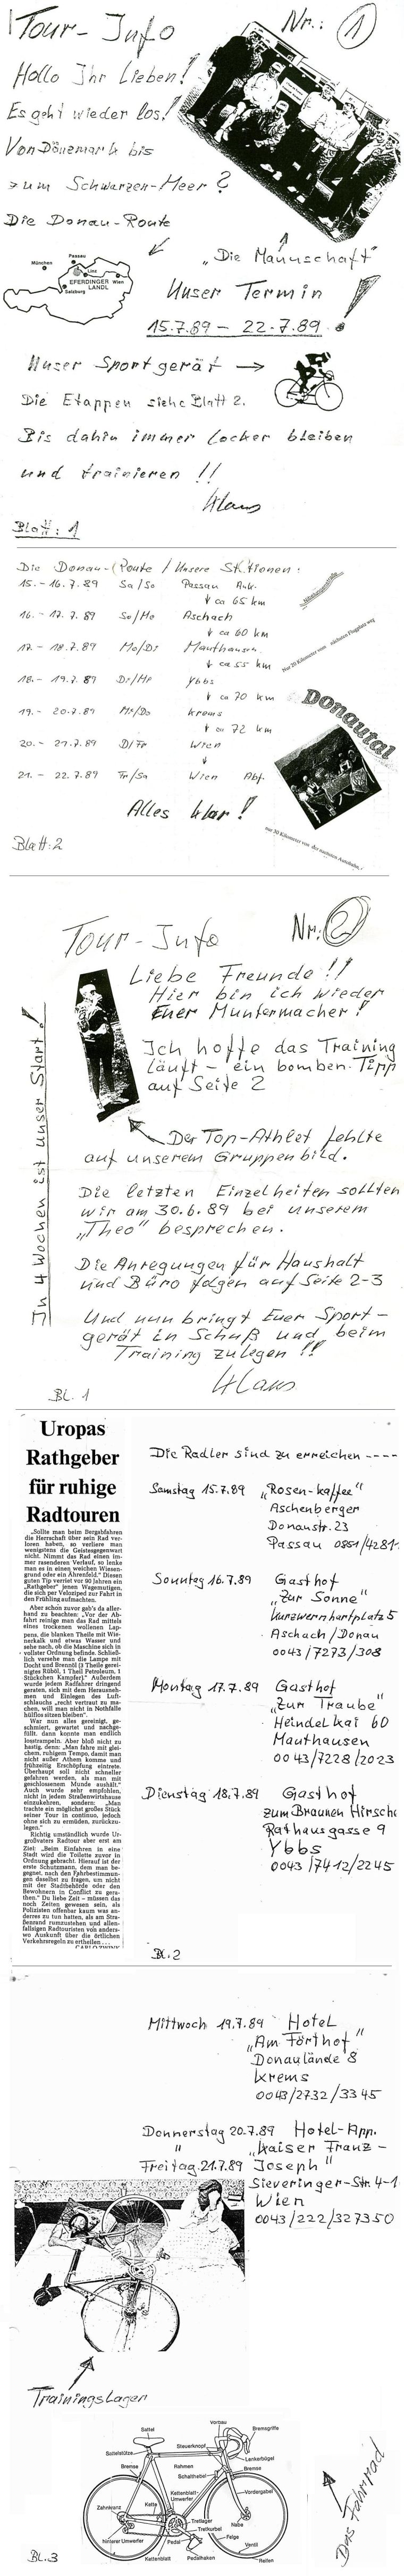 Tour-Info
Nr.: 1
Hallo Ihr Lieben!
Es geht wieder los!
Von Dänemark bis
zum Schwarzen-Meer?
Die Donau-Route
"Die Mannschaft"
München
Passau
Linz
Wien
EFERDINGER
LANDL
Salzburg
Unser Termin
15.7.89 – 22.7.89 !
Unser Sportgerät →
Die Etappen siehe Blatt 2.
Bis dahin immer locker bleiben
und trainieren !!
Klaus
Blatt: 1
Die Donau-Route / Unsere Stationen:
15. - 16. 7. 89 Sa/So Passau Ank.
↓ ca 65 km
16. - 17. 7. 89 So/Mo Aschach
↓ ca 60 km
17. - 18. 7. 89 Mo/Di Mauthausen
↓ ca 55 km
18. - 19. 7. 89 Di/Mi Ybbs
↓ ca 70 km
19. - 20. 7. 89 Mi/Do Krems
↓ ca 72 km
20. - 21. 7. 89 D/Fr Wien
↓
21. - 22. 7. 89 Fr/Sa Wien Abf.
Nur 20 Kilometer vom nächsten Flugplatz weg
Donautal
nur 30 Kilometer von der nächsten Autobahn.
Alles klar!
Blatt: 2
Tour-Info
Nr: 2
Liebe Freunde !!
Hier bin ich wieder
Euer Muntermacher!
Ich hoffe das Training
läuft – ein bomben-Tipp
auf Seite 2
In 4 Wochen ist unser Start!
Der Top-Athlet fehlte
auf unserem Gruppenbild.
Die letzten Einzelheiten sollten
wir am 30.6.89 bei unserem
"Theo" besprechen.
Die Anregungen für Haushalt
und Büro folgen auf Seite 2-3
Und nun bringt Euer Sport-
gerät in Schuß und beim
Training zulegen !!
Klaus
Bl. 1
Uropas
Rathgeber
für ruhige
Radtouren
„Sollte man beim Bergabfahren
die Herrschaft über sein Rad ver-
loren haben, so verliere man
wenigstens die Geistesgegenwart
nicht. Nimmt das Rad einen im-
mer rasenderen Verlauf, so lenke
man es in einen weichen Wiesen-
grund oder ein Ährenfeld." Diesen
guten Tip verriet vor 90 Jahren ein
„Rathgeber" jenen Wagemutigen,
die sich per Veloziped zur Fahrt in
den Frühling aufmachten.
Aber schon zuvor gab's da aller-
hand zu beachten: „Vor der Ab-
fahrt reinige man das Rad mittels
eines trockenen wollenen Lap-
pens, die blanken Theile mit Wie-
nerkalk und etwas Wasser und
sehe nach, ob die Maschine sich in
vollster Ordnung befinde. Schließ-
lich versehe man die Lampe mit
Docht und Brennöl (3 Theile gerei-
nigtes Rüböl, 1 Theil Petroleum, 1
Stückchen Kampfer)." Außerdem
wurde jedem Radfahrer dringend
geraten, sich mit dem Herausneh-
men und Einlegen des Luft-
schlauchs „recht vertraut zu ma-
chen, will man nicht in Nothfalle
hülflos sitzen bleiben".
War nun alles gereinigt, ge-
schmiert, gewartet und nachge-
füllt, dann konnte man endlich
losstrampeln. Aber bloß nicht zu
hastig, denn: „Man fahre mit glei-
chem, ruhigem Tempo, damit man
nicht außer Athem komme und
frühzeitig Erschöpfung eintrete.
Überhaupt soll nicht schneller
gefahren werden, als man mit
geschlossenem Munde aushält."
Auch wurde sehr empfohlen,
nicht in jedem Straßenwirtshause
einzukehren, sondern: „Man
trachte ein möglichst großes Stück
seiner Tour in continuo, jedoch
ohne sich zu ermüden, zurückzu-
legen."
Richtig umständlich wurde Ur-
großvaters Radtour aber erst am
Ziel: „Beim Einfahren in eine
Stadt wird die Toilette zuvor in
Ordnung gebracht. Hierauf ist der
erste Schutzmann, dem man be-
gegnet, nach den Fahrbestimmun-
gen daselbst zu fragen, um nicht
mit der Stadtbehörde oder den
Bewohnern in Conflict zu gera-
then." Du liebe Zeit – müssen das
noch Zeiten gewesen sein, als
Polizisten offenbar kaum was an-
deres zu tun hatten, als am Stra-
ßenrand rumzustehen und allen-
fallsigen Radtouristen von anders-
wo Auskunft über die örtlichen
Verkehrsregeln zu ertheilen . . .
Die Radler sind zu erreichen ----
Samstag 15.7.89 "Rosen-Kaffee"
Aschenberger
Donaustr. 23
Passau 0851/4281
Sonntag 16.7.89 Gasthof
"Zur Sonne"
Kurzwernhartplatz 5
Aschach/Donau
0043/7273/308
Montag 17.7.89 Gasthof
"Zur Traube"
Heindelkai 60
Mauthausen
0043/7228/2023
Dienstag 18.7.89 Gasthof
zum Braunen Hirsche
Rathausgasse 9
Ybbs
0043/7412/2245
Bl. 2
Mittwoch 19.7.89 Hotel
"Am Förthof"
Donaulände 8
Krems
0043/2732/3345
Donnerstag 20.7.89 Hotel-App.
" "Kaiser Franz-
Freitag 21.7.89 Joseph"
Sieveringer-Str. 4-1
Wien
0043/222/327350
Trainingslager
Vorbau
Bremsgriffe
Sattel
Steuerknopf
Lenkerbügel
Sattelstütze
Bremse
Bremse
Rahmen
Schalthebel
Vordergabel
Kettenblatt-
Umwerfer
Kette
Zahnkranz
Tretlager
Tretkurbel
Nabe
Felge
hinterer Umwerfer
Pedal
Ventil
Kettenblatt
Pedalhaken
Reifen
Das Fahrrad
Bl. 3